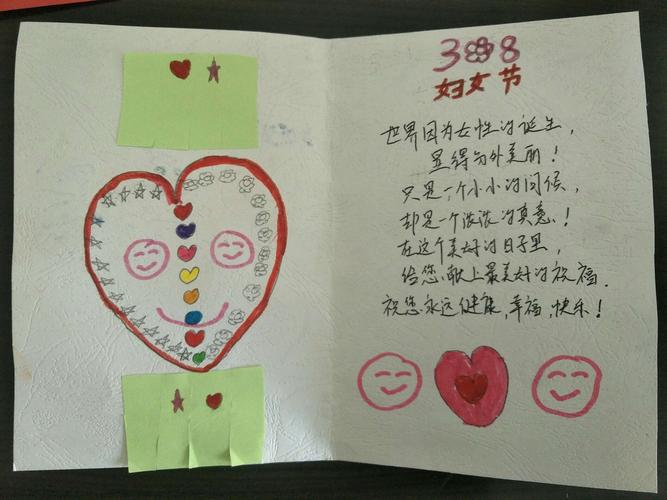 3 8
妇女节
世界因为女性的诞生，
显得与外美丽！
只是一个小小的问候，
却是一个浓浓的真意！
在这个美好的日子里，
给您献上最美好的祝福．
祝您永远健康，幸福，快乐！